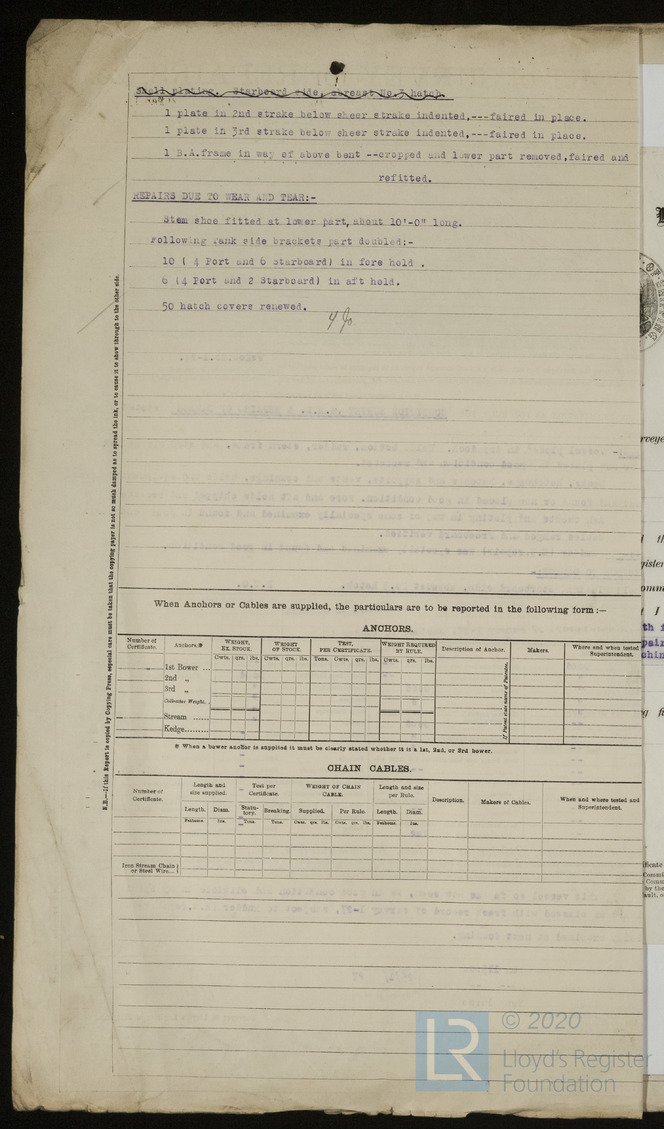 Shell plating. Starboard side, abreast No.3 hatch.
1 plate in 2nd strake below sheer strake indented,---faired in place.
1 plate in 3rd strake below sheer strake indented,---faired in place.
1 B.A.frame in way of above bent --cropped and lower part removed,faired and
refitted.
REPAIRS DUE TO WEAR AND TEAR:-
Stem shoe fitted at lower part, about 10'-0" long.
Following Tank side brackets part doubled:-
10 ( 4 Port and 6 Starboard) in fore hold .
6 (4 Port and 2 Starboard) in aft hold.
50 hatch covers renewed.
N.B.—If this Report is copied by Copying Press, especial care must be taken that the copying paper is not so much damped as to spread the ink, or to cause it to show through to the other side.
When Anchors or Cables are supplied, the particulars are to be reported in the following form :—
ANCHORS.
Number of Certificate. Anchors.※ WEIGHT, EX. STOCK. WEIGHT OF STOCK. TEST, PER CERTIFICATE. WEIGHT REQUIRED BY RULE. Description of Anchor. Makers. Where and when tested Superintendent.
Cwts. qrs. lbs. Cwts. qrs. lbs. Tons. Cwts. qrs. lbs. Cwts. qrs. lbs.
1st Bower ...
2nd „
3rd „
Collective Weight..
Stream ......
Kedge.........
If Patent state name of Patentee.
※ When a bower anchor is supplied it must be clearly stated whether it is a 1st, 2nd, or 3rd bower.
CHAIN CABLES.
Number of Certificate. Length and size supplied. Test per Certificate. WEIGHT OF CHAIN CABLE. Length and size per Rule. Description. Makers of Cables. When and where tested and Superintendent.
Length. Diam. Statutory. Breaking. Supplied. Per Rule. Length. Diam.
Fathoms. Ins. Tons. Tons. Cwts. qrs. lbs. Cwts. qrs. lbs. Fathoms. Ins.
Iron Stream Chain or Steel Wire...
LR
© 2020
Lloyd's Register
Foundation